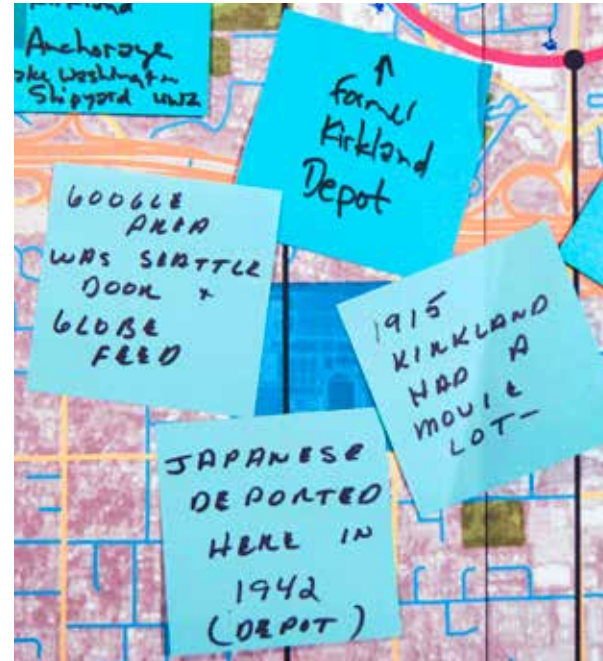 Anchorage
Lake Washington
Shipyard WW2
↑
Former
Kirkland
Depot
GOOGLE
AREA
WAS SEATTLE
DOOR +
GLOBE
FEED
1915
KIRKLAND
HAD A
MOVIE
LOT-
JAPANESE
DEPORTED
HERE IN
1942
(DEPOT)